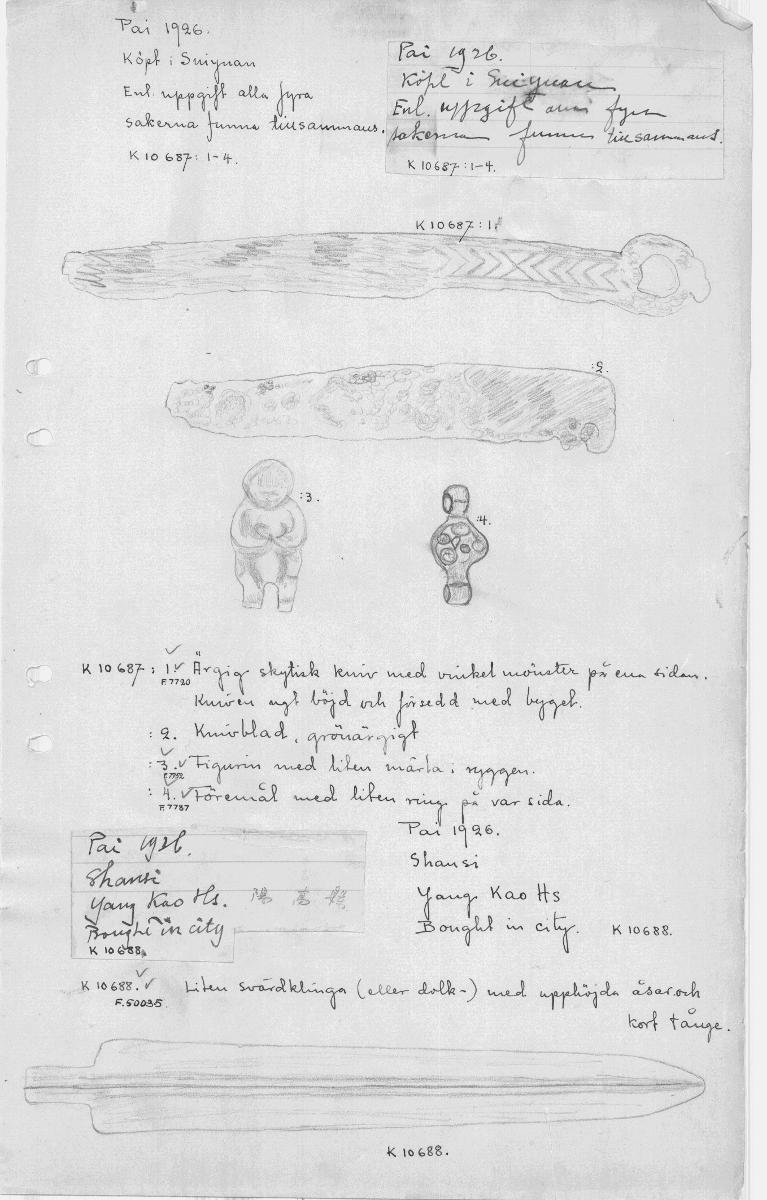 Pai 1926.
Köpt i Suiyuan
Enl. uppgift alla fyra
sakerna funna tillsammans.
K 10687: 1-4.
Pai 1926.
Köpt i Suiyuan
Enl. uppgift alla fyra
sakerna funna tillsammans.
K 10687:1-4.
K 10687:1.
:2.
:3.
:4.
K 10687: 1. Ärgig skytisk kniv med vinkelmönster på ena sidan.
F.7720
Kniven ngt böjd och försedd med bygel.
:2. Knivblad, grönärgigt
:3. Figurin med liten märla i ryggen.
:4. Föremål med liten ring på var sida.
F.7787
Pai 1926.
Shansi
Yang Kao Hs. 陽 高 縣
Bought in city
K 10688.
Pai 1926.
Shansi
Yang Kao Hs
Bought in city. K 10688.
K 10688. Liten svärdklinga (eller dolk-) med upphöjda åsar och
F.50035.
kort tånge.
K 10688.